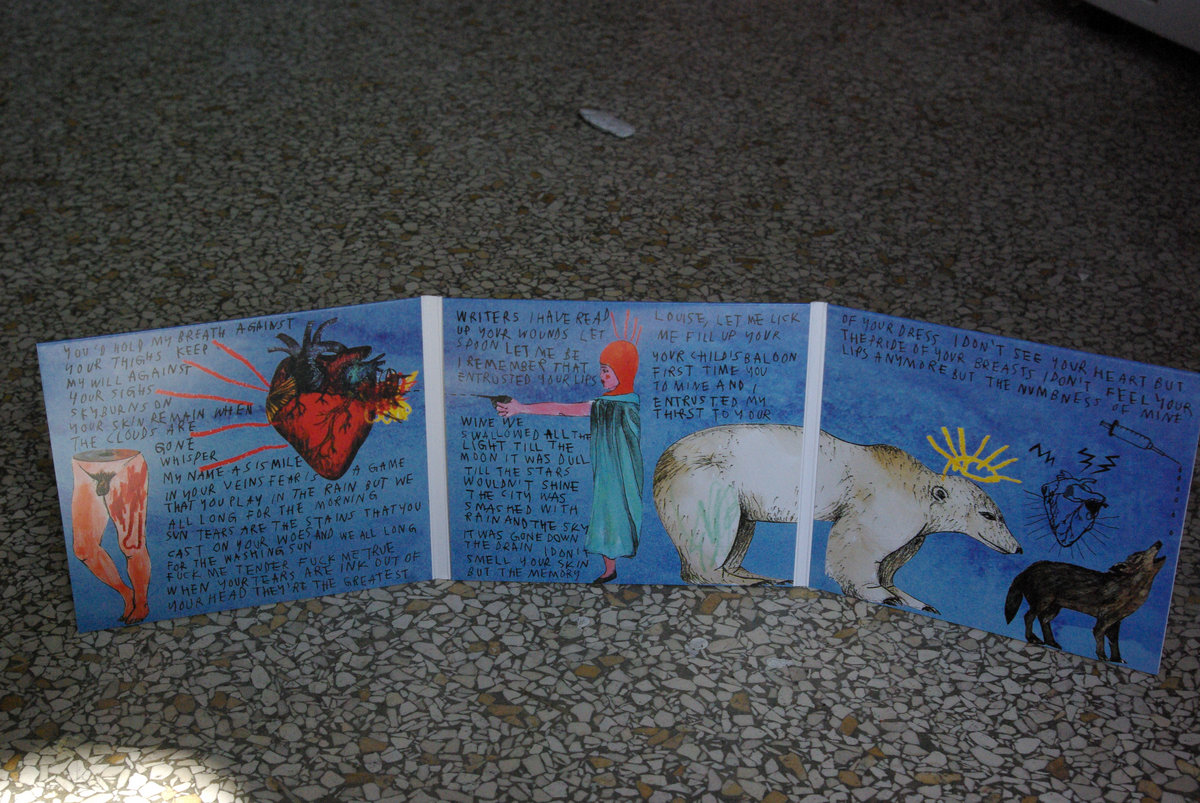 YOU'D HOLD MY BREATH AGAINST
YOUR THIGHS KEEP
MY WILL AGAINST
YOUR SIGHS
SKYBURNS ON
YOUR SKIN REMAIN WHEN
THE CLOUDS ARE
GONE
WHISPER
MY NAME AS IS MILE
IN YOUR VEINS FEAR IS A GAME
THAT YOU PLAY IN THE RAIN BUT WE
ALL LONG FOR THE MORNING
SUN TEARS ARE THE STAINS THAT YOU
CAST ON YOUR WOES AND WE ALL LONG
FOR THE WASHING SUN
FUCK ME TENDER FUCK ME TRUE
WHEN YOUR TEARS ARE INK OUT OF
YOUR HEAD THEY'RE THE GREATEST
WRITERS I HAVE READ
UP YOUR WOUNDS LET
SPOON LET ME BE
I REMEMBER THAT
ENTRUSTED YOUR LIPS
WINE WE
SWALLOWED ALL THE
LIGHT TILL THE
MOON IT WAS DULL
TILL THE STARS
WOULDN'T SHINE
THE CITY WAS
SMASHED WITH
RAIN AND THE SKY
IT WAS GONE DOWN
THE DRAIN I DON'T
SMELL YOUR SKIN
BUT THE MEMORY
LOUISE, LET ME LICK
ME FILL UP YOUR
YOUR CHILDIS BALOON
FIRST TIME YOU
TO MINE AND I
ENTRUSTED MY
THIRST TO YOUR
OF YOUR DRESS I DON'T SEE YOUR HEART BUT
THE PRIDE OF YOUR BREASTS I DON'T FEEL YOUR
LIPS ANYMORE BUT THE NUMBNESS OF MINE